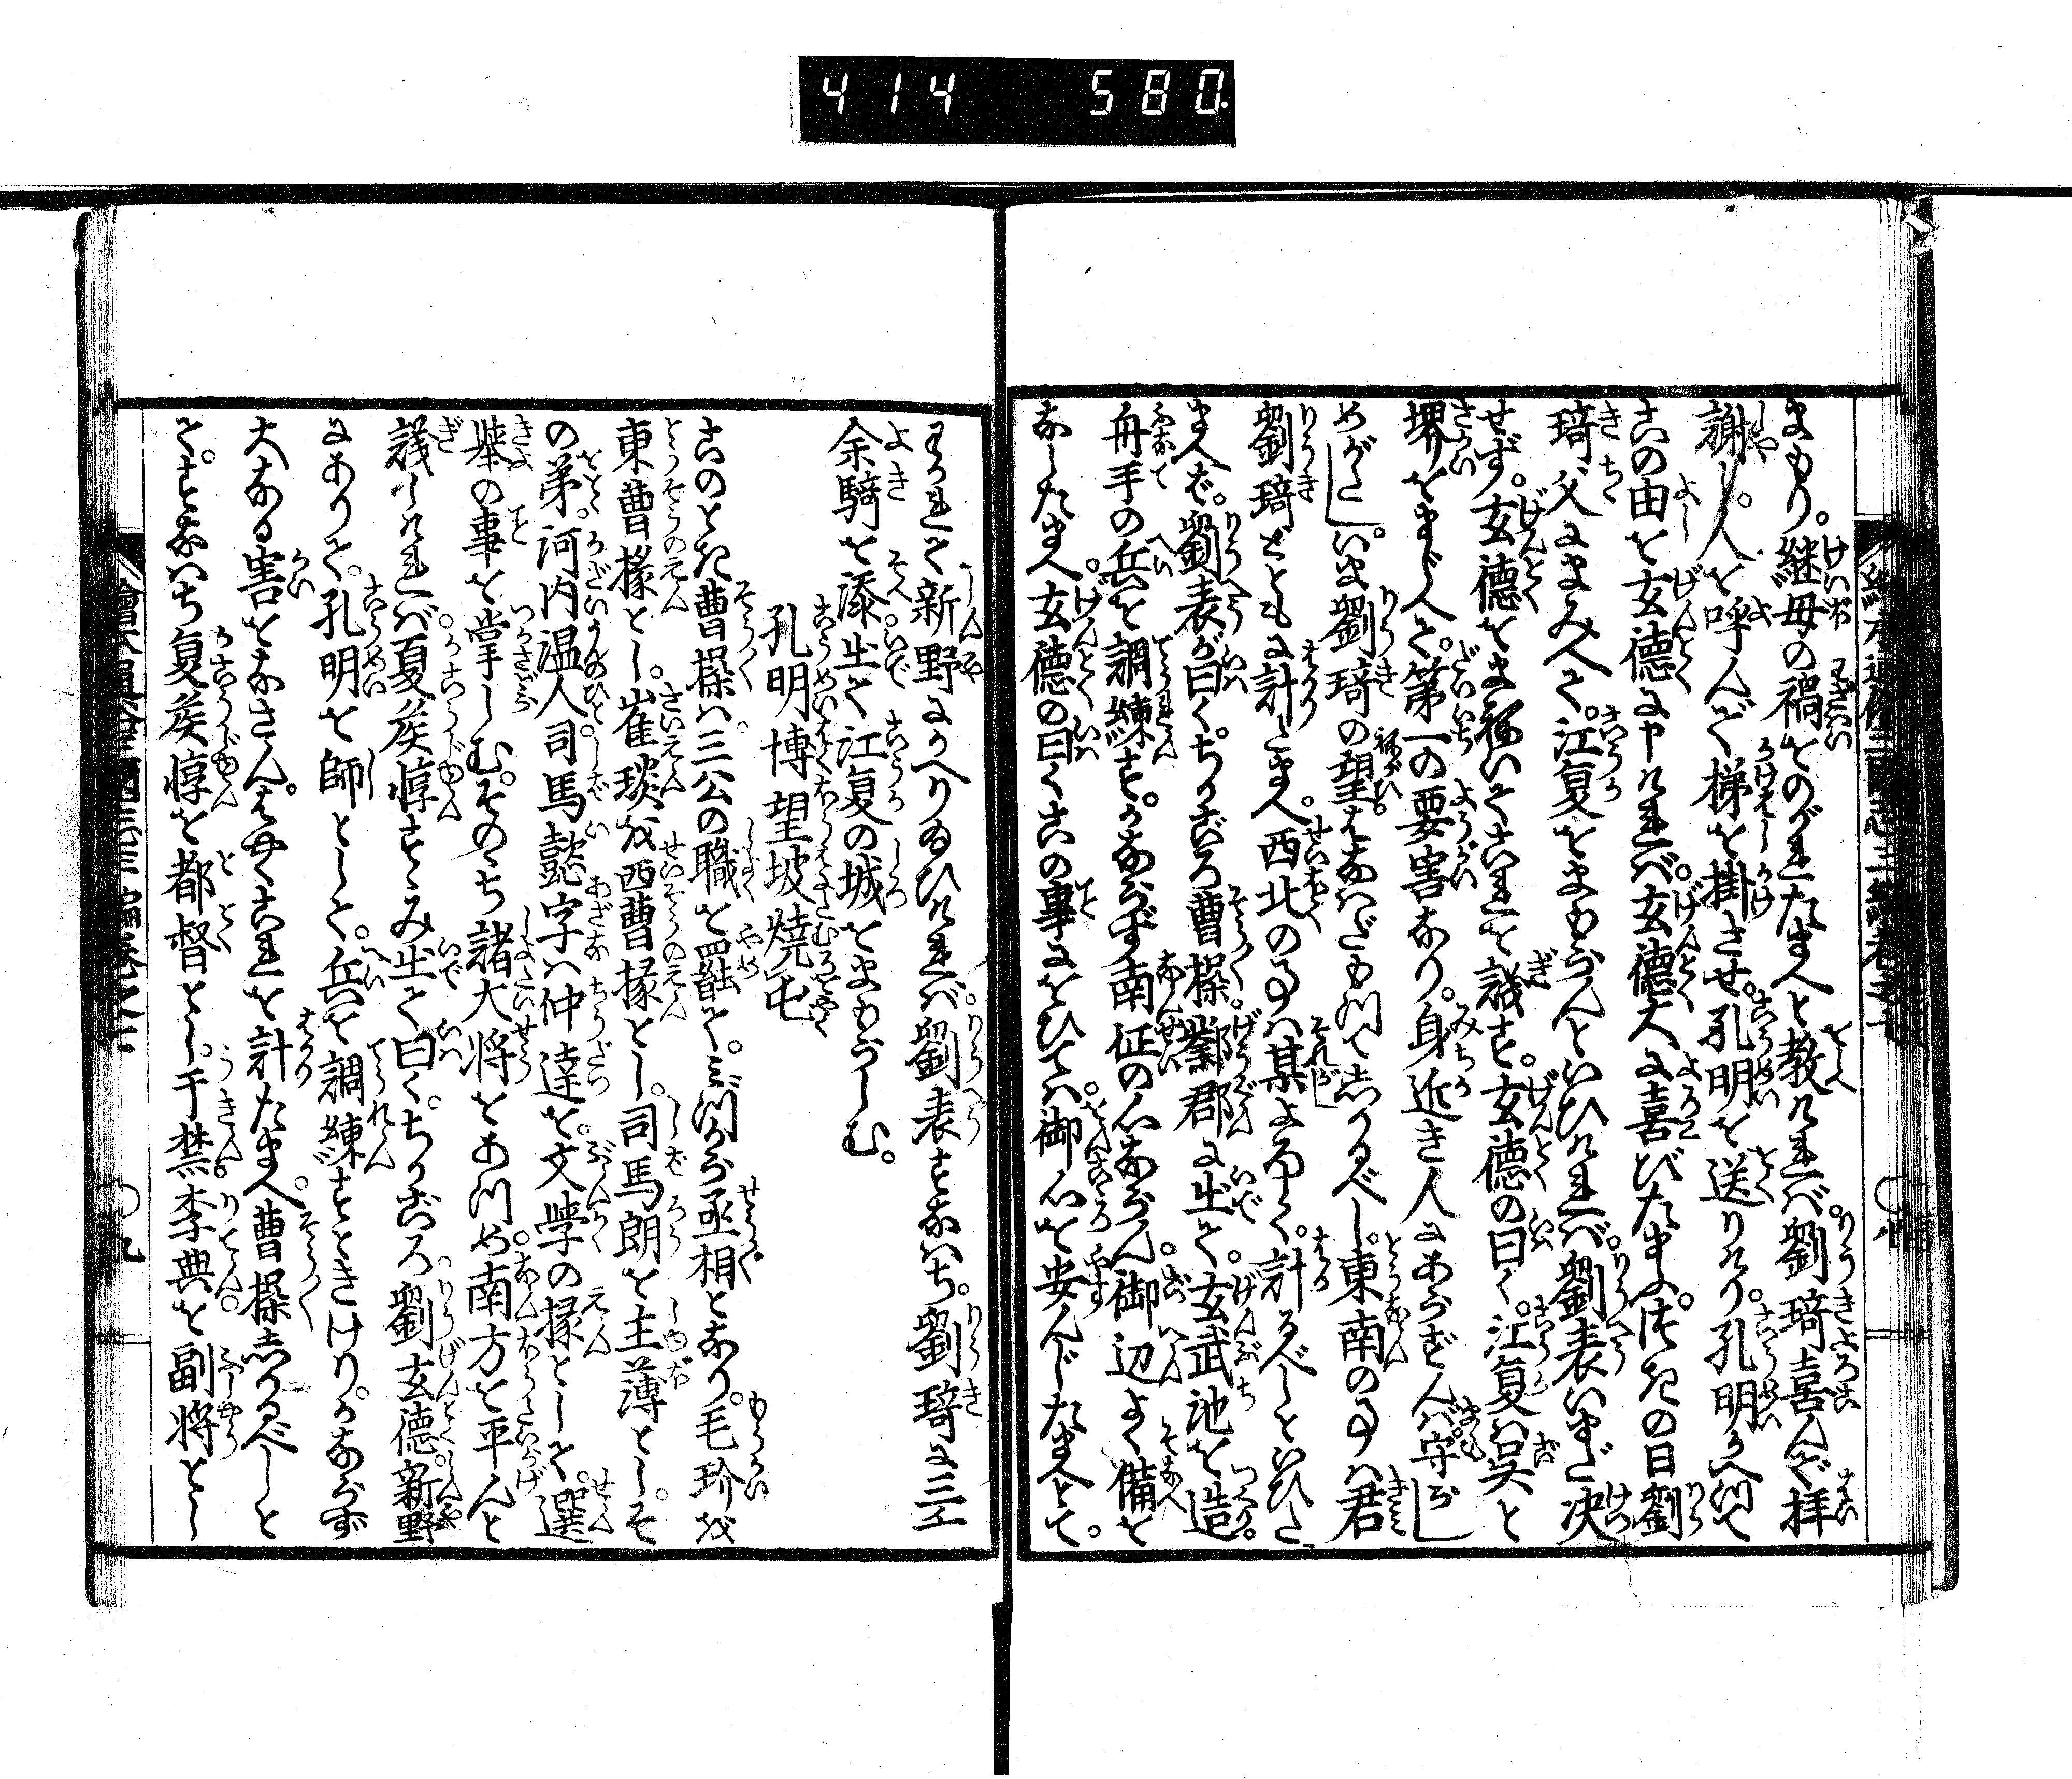 414 580
繪本通俗三國志三編卷之二
まもり。継母の禍をのがれたまへと教ければ。劉琦喜んで拝
謝し。人を呼んで梯を掛させ。孔明を送りけり。孔明かへつて
この由を玄徳に申ければ。玄徳大に喜びたまふ。次の日劉
琦父にまみへて。江夏をまもらんといひければ。劉表いまだ决
せず。玄徳をまねいてこれを議す。玄徳の曰く。江夏は呉と
堺をまじへて。第一の要害なり。身近き人にあらざれば守りが
めがたし。いま劉琦の望はなはだもつてしかるべし。東南の事は君
劉琦とともに計たまへ。西北の事は某よろしく計るべしといひた
まへば。劉表が曰く。ちかごろ曹操。鄴郡に出て。玄武池を造り
舟手の兵を調練す。かならず南征の心あらん。御辺よく備を
なしたまへ。玄徳の曰くこの事においては。御心を安んじたまへとて。
八
わかれて新野にかへりぬひければ。劉表すなはち。劉琦に三千
余騎を添。出て江夏の城をまもらしむ。
孔明博望坡焼屯
このとき曹操は。三公の職を罷て。みづから丞相となり。毛玠を
東曹掾とし。崔琰を西曹掾とし。司馬朗を主薄とし。そ
の弟。河内温人司馬懿字は仲達を。文学の掾として。選
挙の事を掌しむ。そのゝち諸大将をあつめ。南方を平んと
議しければ。夏侯惇すゝみ出て曰く。ちかごろ劉玄徳。新野
にありて。孔明を師として。兵を調練すときけり。かならず
大なる害をなさん。はやくこれを計たまへ。曹操しかるべしと
て。すなはち夏侯惇を都督とし。于禁。李典を副将とし
繪本通俗三國志三編卷之二
九